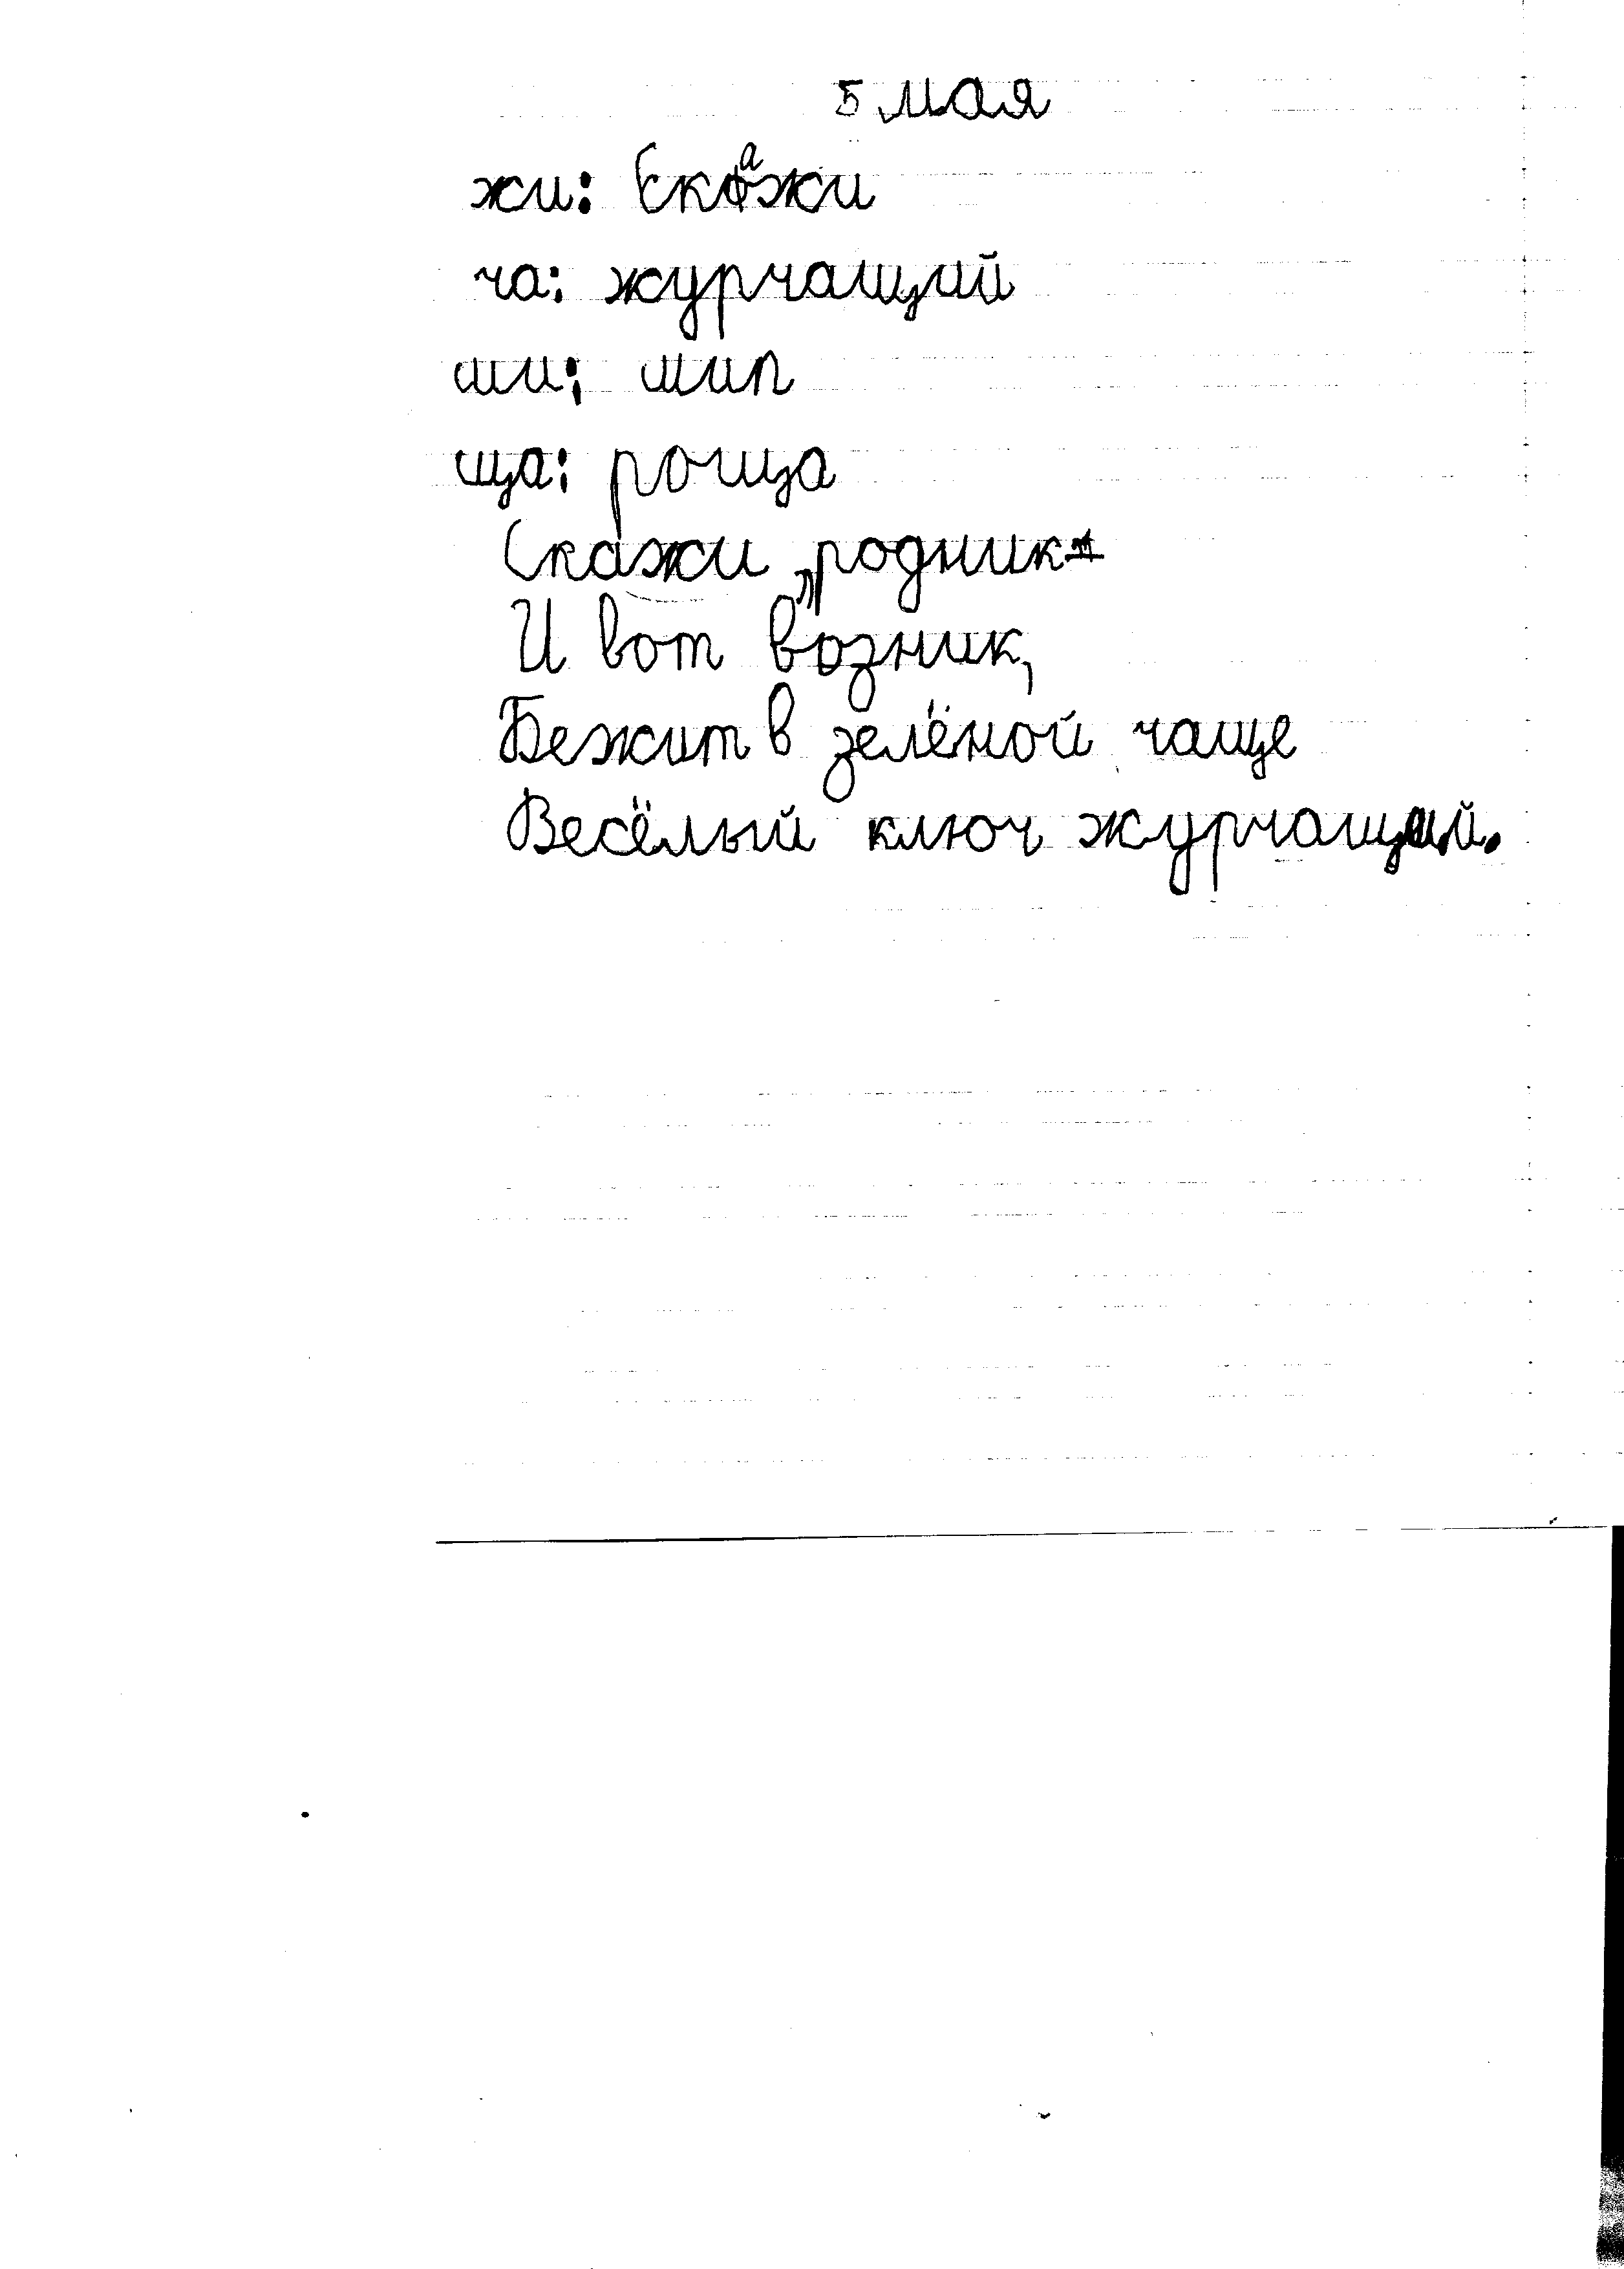 5 мая
жи: Скажи
ча: журчащий
ши: шип
ща: роща
Скажи „родник"
И вот возник,
Бежит в зелёной чаще
Весёлый ключ журчащий.